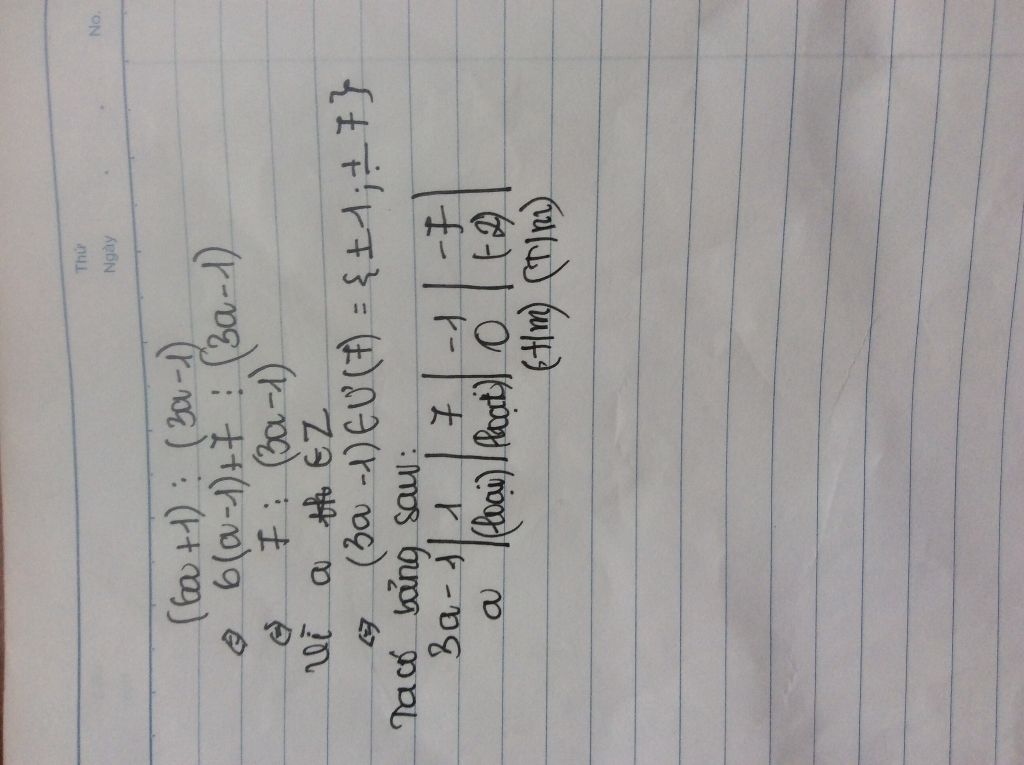 Thứ
Ngày
No.
(6a+1) : (3a-1)
⇔ 6(a-1)+7 : (3a-1)
⇔ 7 : (3a-1)
Vì a ∈ Z
⇔ (3a-1) ∈ Ư(7) = {±1; ±7}
Ta có bảng sau:
3a-1 | 1 | 7 | -1 | -7 |
a | (loại) | (loại) | 0 | (-2) |
(T/m) (T/m)